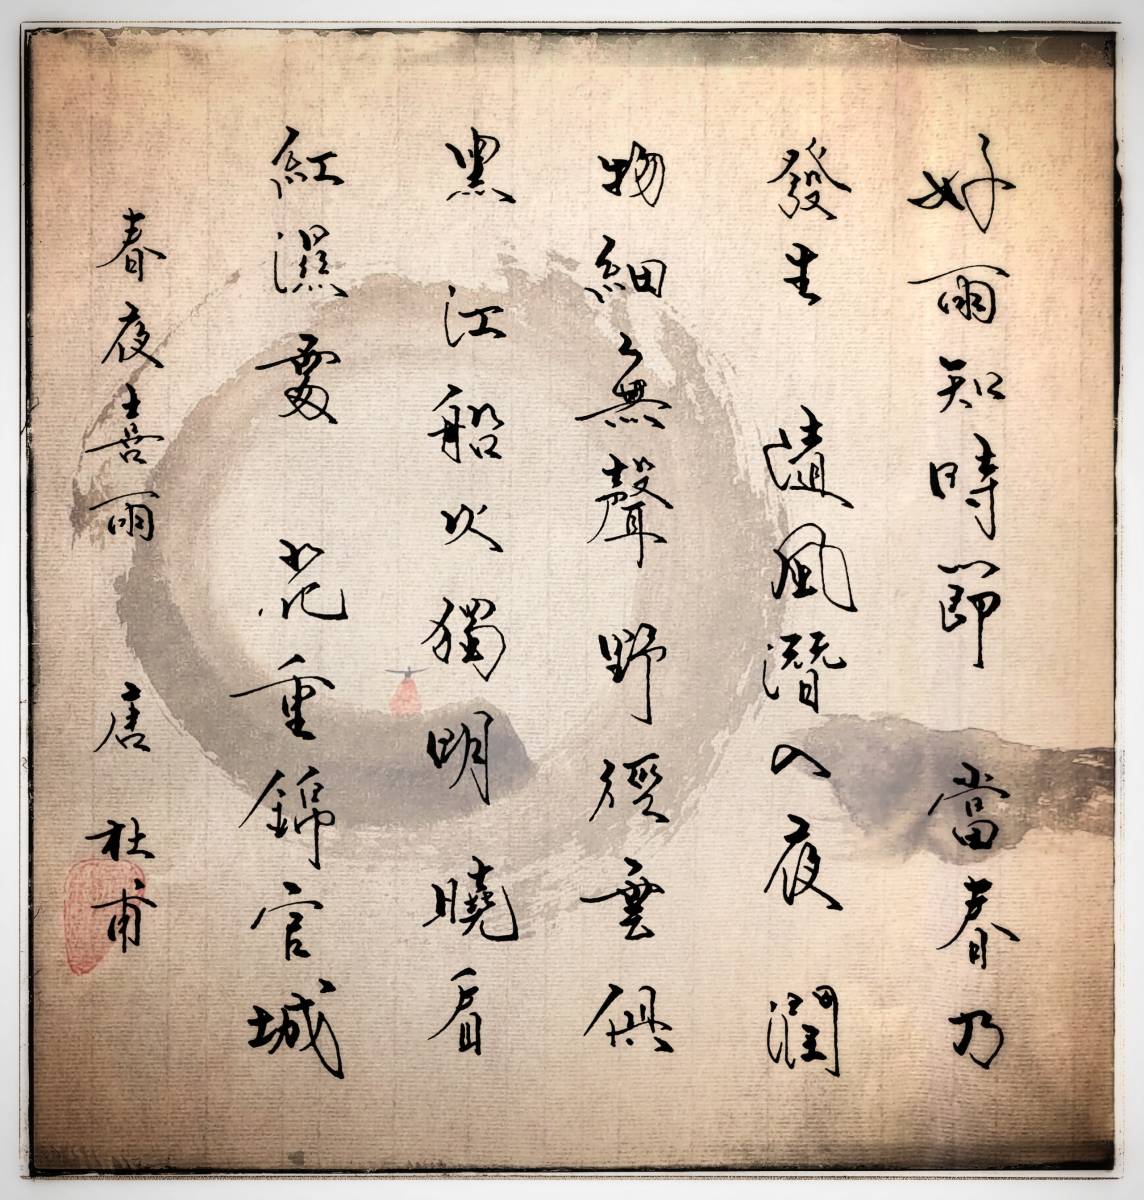 好雨知時節 當春乃
發生 隨風潛入夜 潤
物細無聲 野徑雲俱
黑 江船火獨明 曉看
紅濕處 花重錦官城
春夜喜雨 唐 杜甫